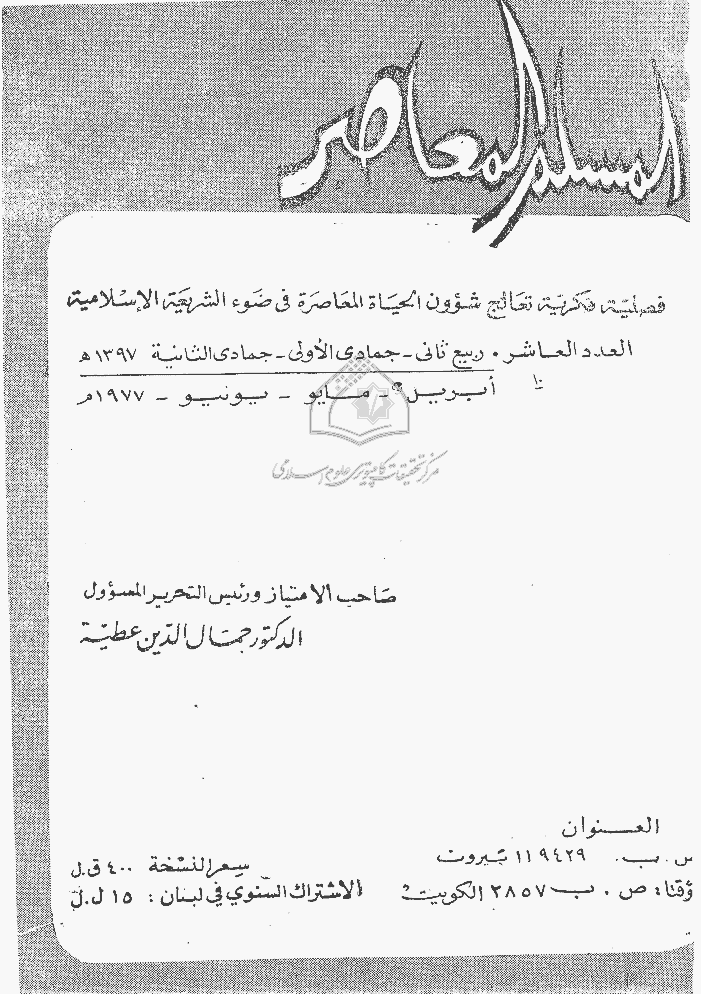 المسلم المعاصر
فصلية فكرية تعالج شؤون الحياة المعاصرة في ضوء الشريعة الإسلامية
العدد العاشر • ربيع ثاني - جمادى الأولى - جمادى الثانية ١٣٩٧ ه
١٠
أبريل - مايو - يونيو - ١٩٧٧ م
مركز تحقيقات كامپيوتري علوم اسلامي
صاحب الامتياز ورئيس التحرير المسؤول
الدكتور جمال الدين عطية
العنوان
ص . ب . ٩٤٢٩ ١١ بيروت
سعر النسخة ٤٠٠ ق.ل
وقتا : ص . ب ٢٨٥٧ الكويت
الاشتراك السنوي في لبنان : ١٥ ل.ل